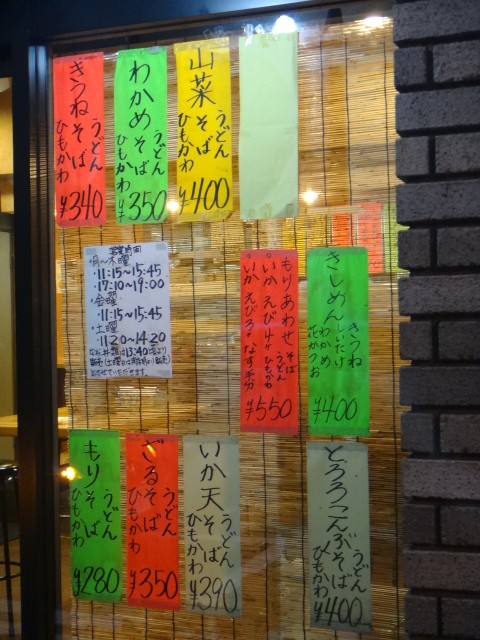 きつね うどん
そば
ひもかわ
¥340
わかめ うどん
そば
ひもかわ
¥350
山菜 うどん
そば
ひもかわ
¥400
営業時間
月〜木曜
・11:15〜15:45
・17:10〜19:00
・金曜
・11:15〜15:45
・土曜
・11:20〜14:20
もりあわせ そば
うどん
ひもかわ
・いか えび
・いか えび
¥550
きしめん きつね
しいたけ
わかめ
花かつお
¥400
もり うどん
そば
ひもかわ
¥280
ざる うどん
そば
ひもかわ
¥350
いか天 うどん
そば
ひもかわ
¥390
とろろこんぶ うどん
そば
ひもかわ
¥400